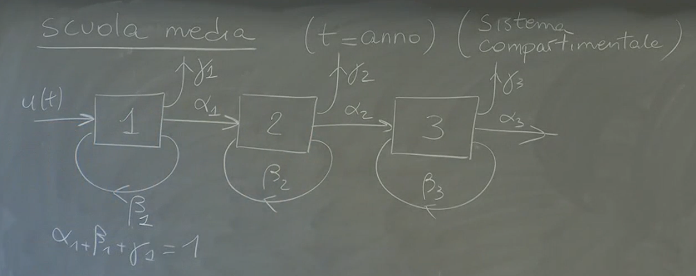 scuola media (t = anno) (Sistema compartimentale)
γ1 γ2 γ3
u(t) 1 α1 2 α2 3 α3
β1 β2 β3
α1+β1+γ1=1